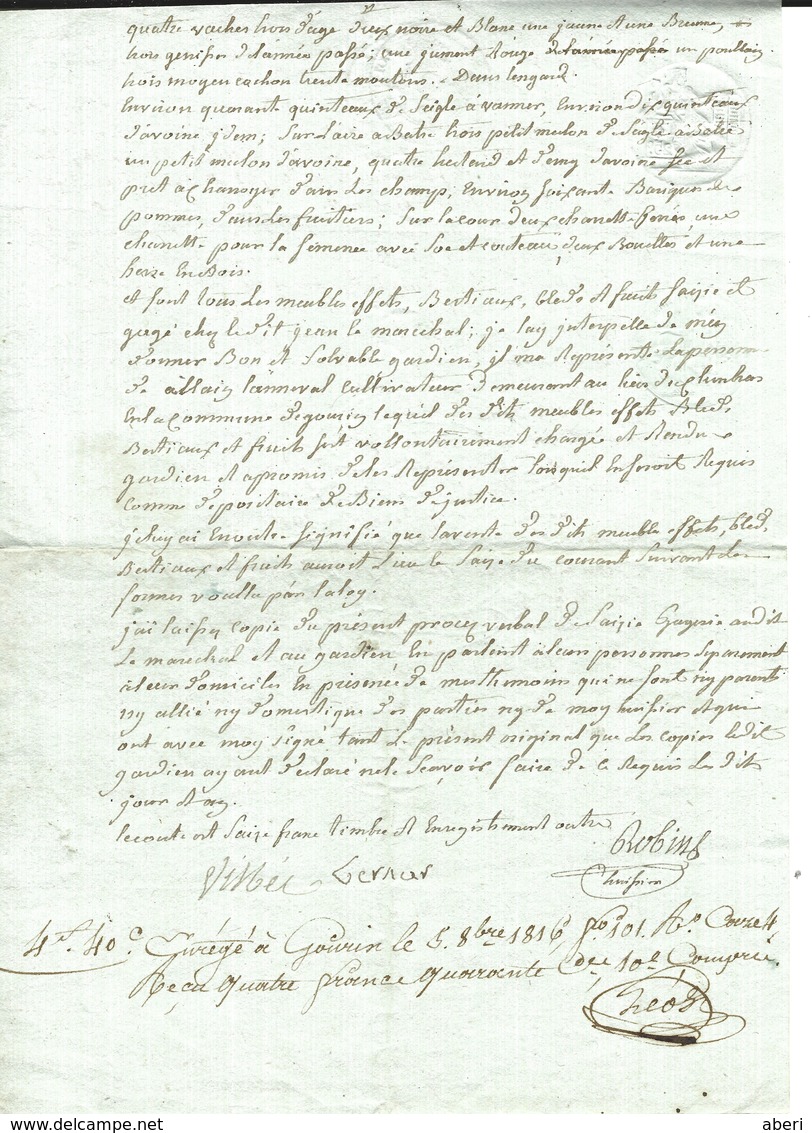 quatre vaches hors d'age deux noire et Blanc une jaune et une Brune,
trois genisses de l'année passé; une jument Rouge un poullain
trois moyen cochon trente moutons. Dans l'engard
Environ quarante quinteaux de Seigle à vanner, Environ dix quinteaux
d'avoine jdem; Sur l'aire a Batre trois petit mulon de Seigle
un petit mulon d'avoine, quatre et demy d'avoine et
pret à dans Les champs; Environ Soixante Bariques de
pommes, dans Les fruitiers; Sur la cour deux charette une
charette pour la Semence avec Soc et couteau, deux et une
herse En Bois.
et Sont tous Les meubles effets, Bestiaux, bleds et fruit Saisie et
gagé chez Le dit jean Le marechal; je l'ay jnterpellé de m'en
donner Bon et Solvable gardien, jl ma Représenté La personne
de allain cultivateur demeurant au Lieu du
En la Commune de gourin lequel des dits meubles effets Bleds
Bestiaux et fruit S'est vollontairement chargé et Rendu
gardien et a promis de les Représenter lorsqu'il En seroit Requis
comme dépositaire de Biens de justice.
j'ay En outre Signifié que la vente des dits meuble effets, bled,
Bestiaux et fruits auroit Lieu le Saize du courant Suivant Les
formes voullu par la loy.
j'ai laissé copie du présent procez verbal de Saisie Gagerie audit
Le marechal et au gardien En parlant à leurs personnes Séparement
à leur domiciles En présence de mes themoins qui ne Sont ny parents
ny allié ny domestique des parties ny de moy huissier et qui
ont avec moy Signé tant Le présent original que Les copies Ledit
gardien ayant déclaré ne le Sçavoir faire de ce Requis Les dits
jour et an.
le coute est Saize franc timbre et Enregistrement outre
Robin
huissier
4f. 40c. Enrégé à Gourin le 5. 8bre 1816 fo. 101. Ro. Caze 4,
Reçu quatre francs quarante ce 10e Compris.
aberi
delcampe.net